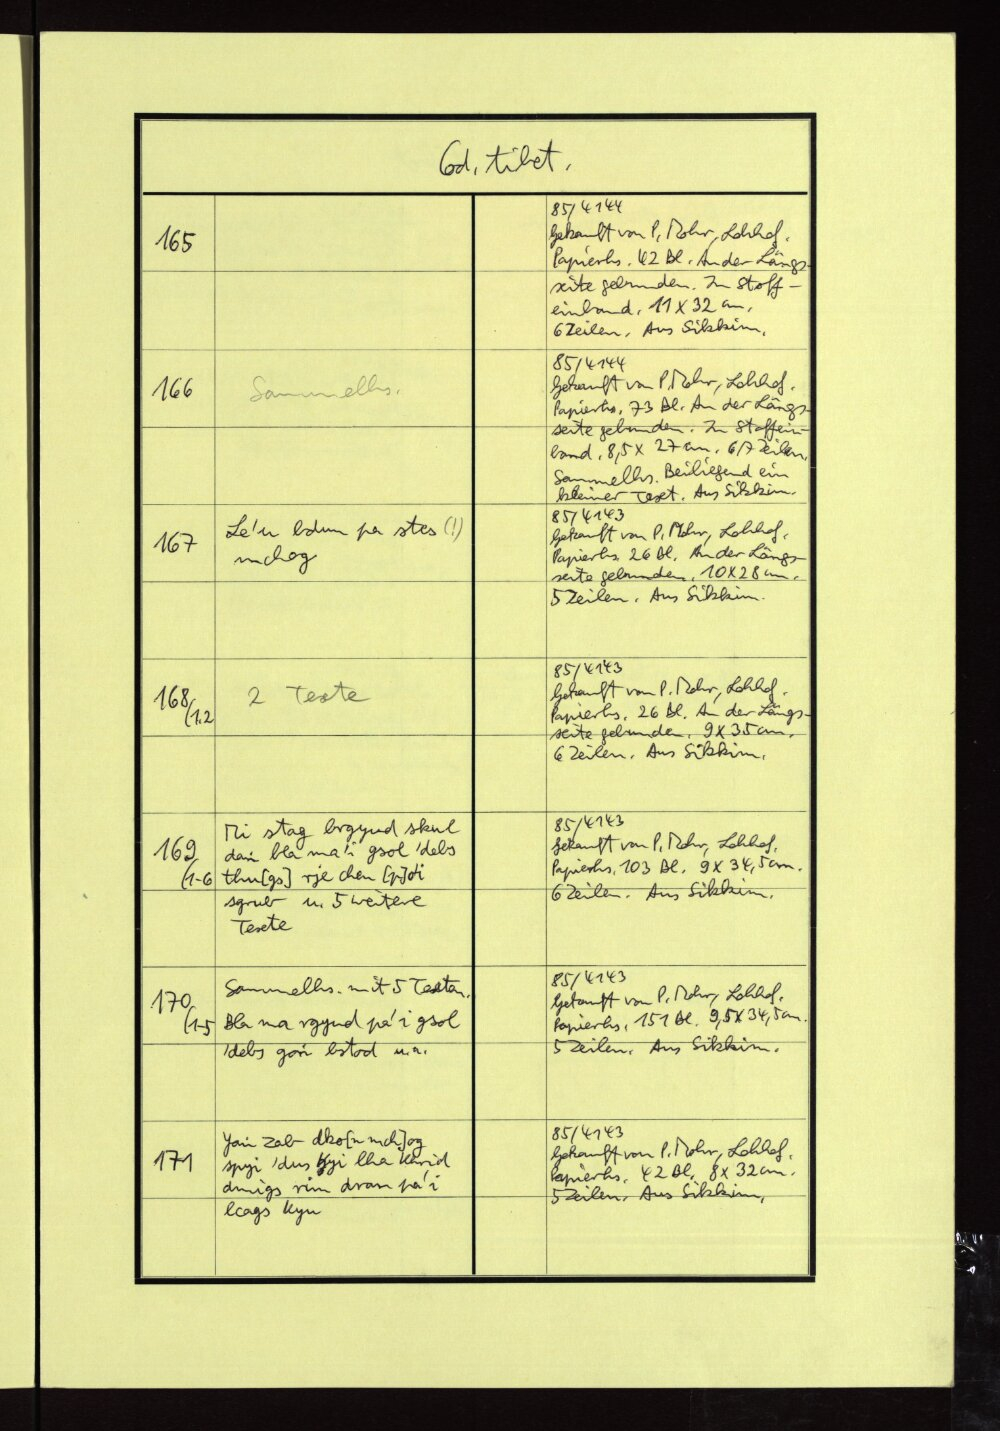 Cod. tibet.
165
85/4144
Gekauft von P. Mohr, Lohhof.
Papierhs. 42 Bl. An der Längs-
seite gebunden. In Stoff-
einband. 11 x 32 cm.
6 Zeilen. Aus Sikkim.
166
Sammelhs.
85/4144
Gekauft von P. Mohr, Lohhof.
Papierhs. 73 Bl. An der Längs-
seite gebunden. In Stoffein-
band. 8,5 x 27 cm. 6/7 Zeilen.
Sammelhs. Beiliegend ein
kleiner Text. Aus Sikkim.
167
Le'u bdun pa stes (!)
mchog
85/4143
Gekauft von P. Mohr, Lohhof.
Papierhs. 26 Bl. An der Längs-
seite gebunden. 10 x 28 cm.
5 Zeilen. Aus Sikkim.
168
(1.2
2 Texte
85/4143
Gekauft von P. Mohr, Lohhof.
Papierhs. 26 Bl. An der Längs-
seite gebunden. 9 x 35 cm.
6 Zeilen. Aus Sikkim.
169
(1-6
Mi stag brgyud skul
daṅ bla ma'i gsol 'debs
thu[gs] rje chen [p]o'i
sgrub u. 5 weitere
Texte
85/4143
Gekauft von P. Mohr, Lohhof.
Papierhs. 103 Bl. 9 x 34,5 cm.
6 Zeilen. Aus Sikkim.
170
(1-5
Sammelhs. mit 5 Texten.
Bla ma rgyud pa'i gsol
'debs goṅ bstod u.a.
85/4143
Gekauft von P. Mohr, Lohhof.
Papierhs. 151 Bl. 9,5 x 34,5 cm.
5 Zeilen. Aus Sikkim.
171
Yaṅ zab dko[n mch]og
spyi 'dus kyi lha khrid
dmigs rim dran pa'i
lcags kyu
85/4143
Gekauft von P. Mohr, Lohhof.
Papierhs. 42 Bl. 8 x 32 cm.
5 Zeilen. Aus Sikkim.